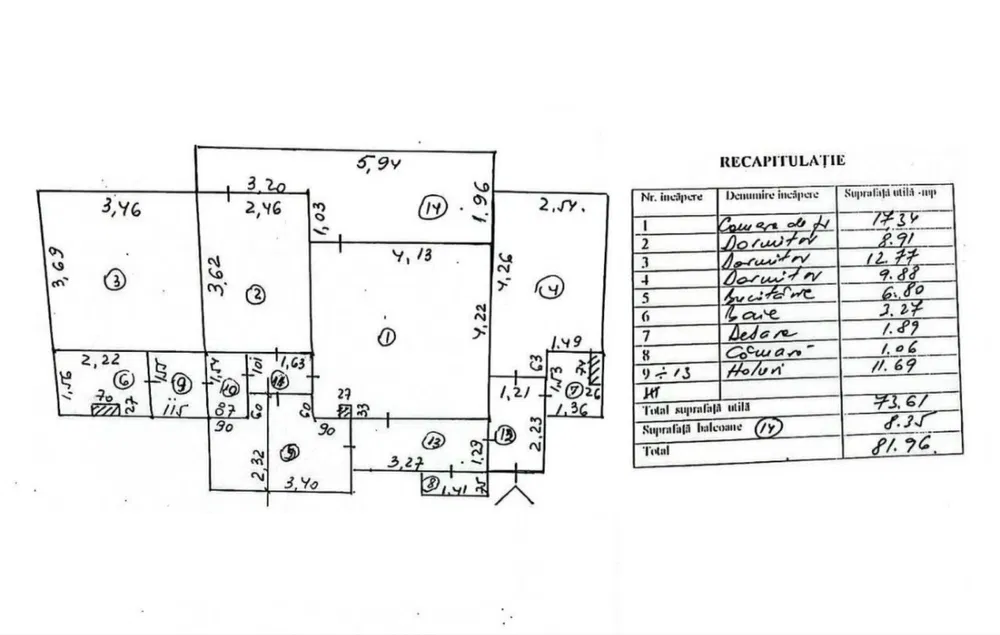 5,94
3,20
3,46
2,46
1,03
14
1,96
2,54.
4,13
3,69
3
3,62
2
4,26
4
1
4,22
1.49
2,22
6
1,55
9
1,54
10
101
1,63
11
63
1,53
7
74
26
1,56
70
27
115
87
90
60
60
90
27
33
1,21
1,36
2,32
5
3,40
13
3,27
1,29
12
2,23
8
1,41
75
RECAPITULAȚIE
Nr. incăpere Denumire incăpere Suprafață utilă -mp
1 Camera de zi 17,34
2 Dormitor 8.91
3 Dormitor 12.77
4 Dormitor 9.88
5 Bucătărie 6.80
6 Baie 3.27
7 Debara 1.89
8 Cămară 1.06
9 ÷ 13 Holuri 11.69
Total suprafață utilă 73,61
Suprafață balcoane 14 8.35
Total 81.96.